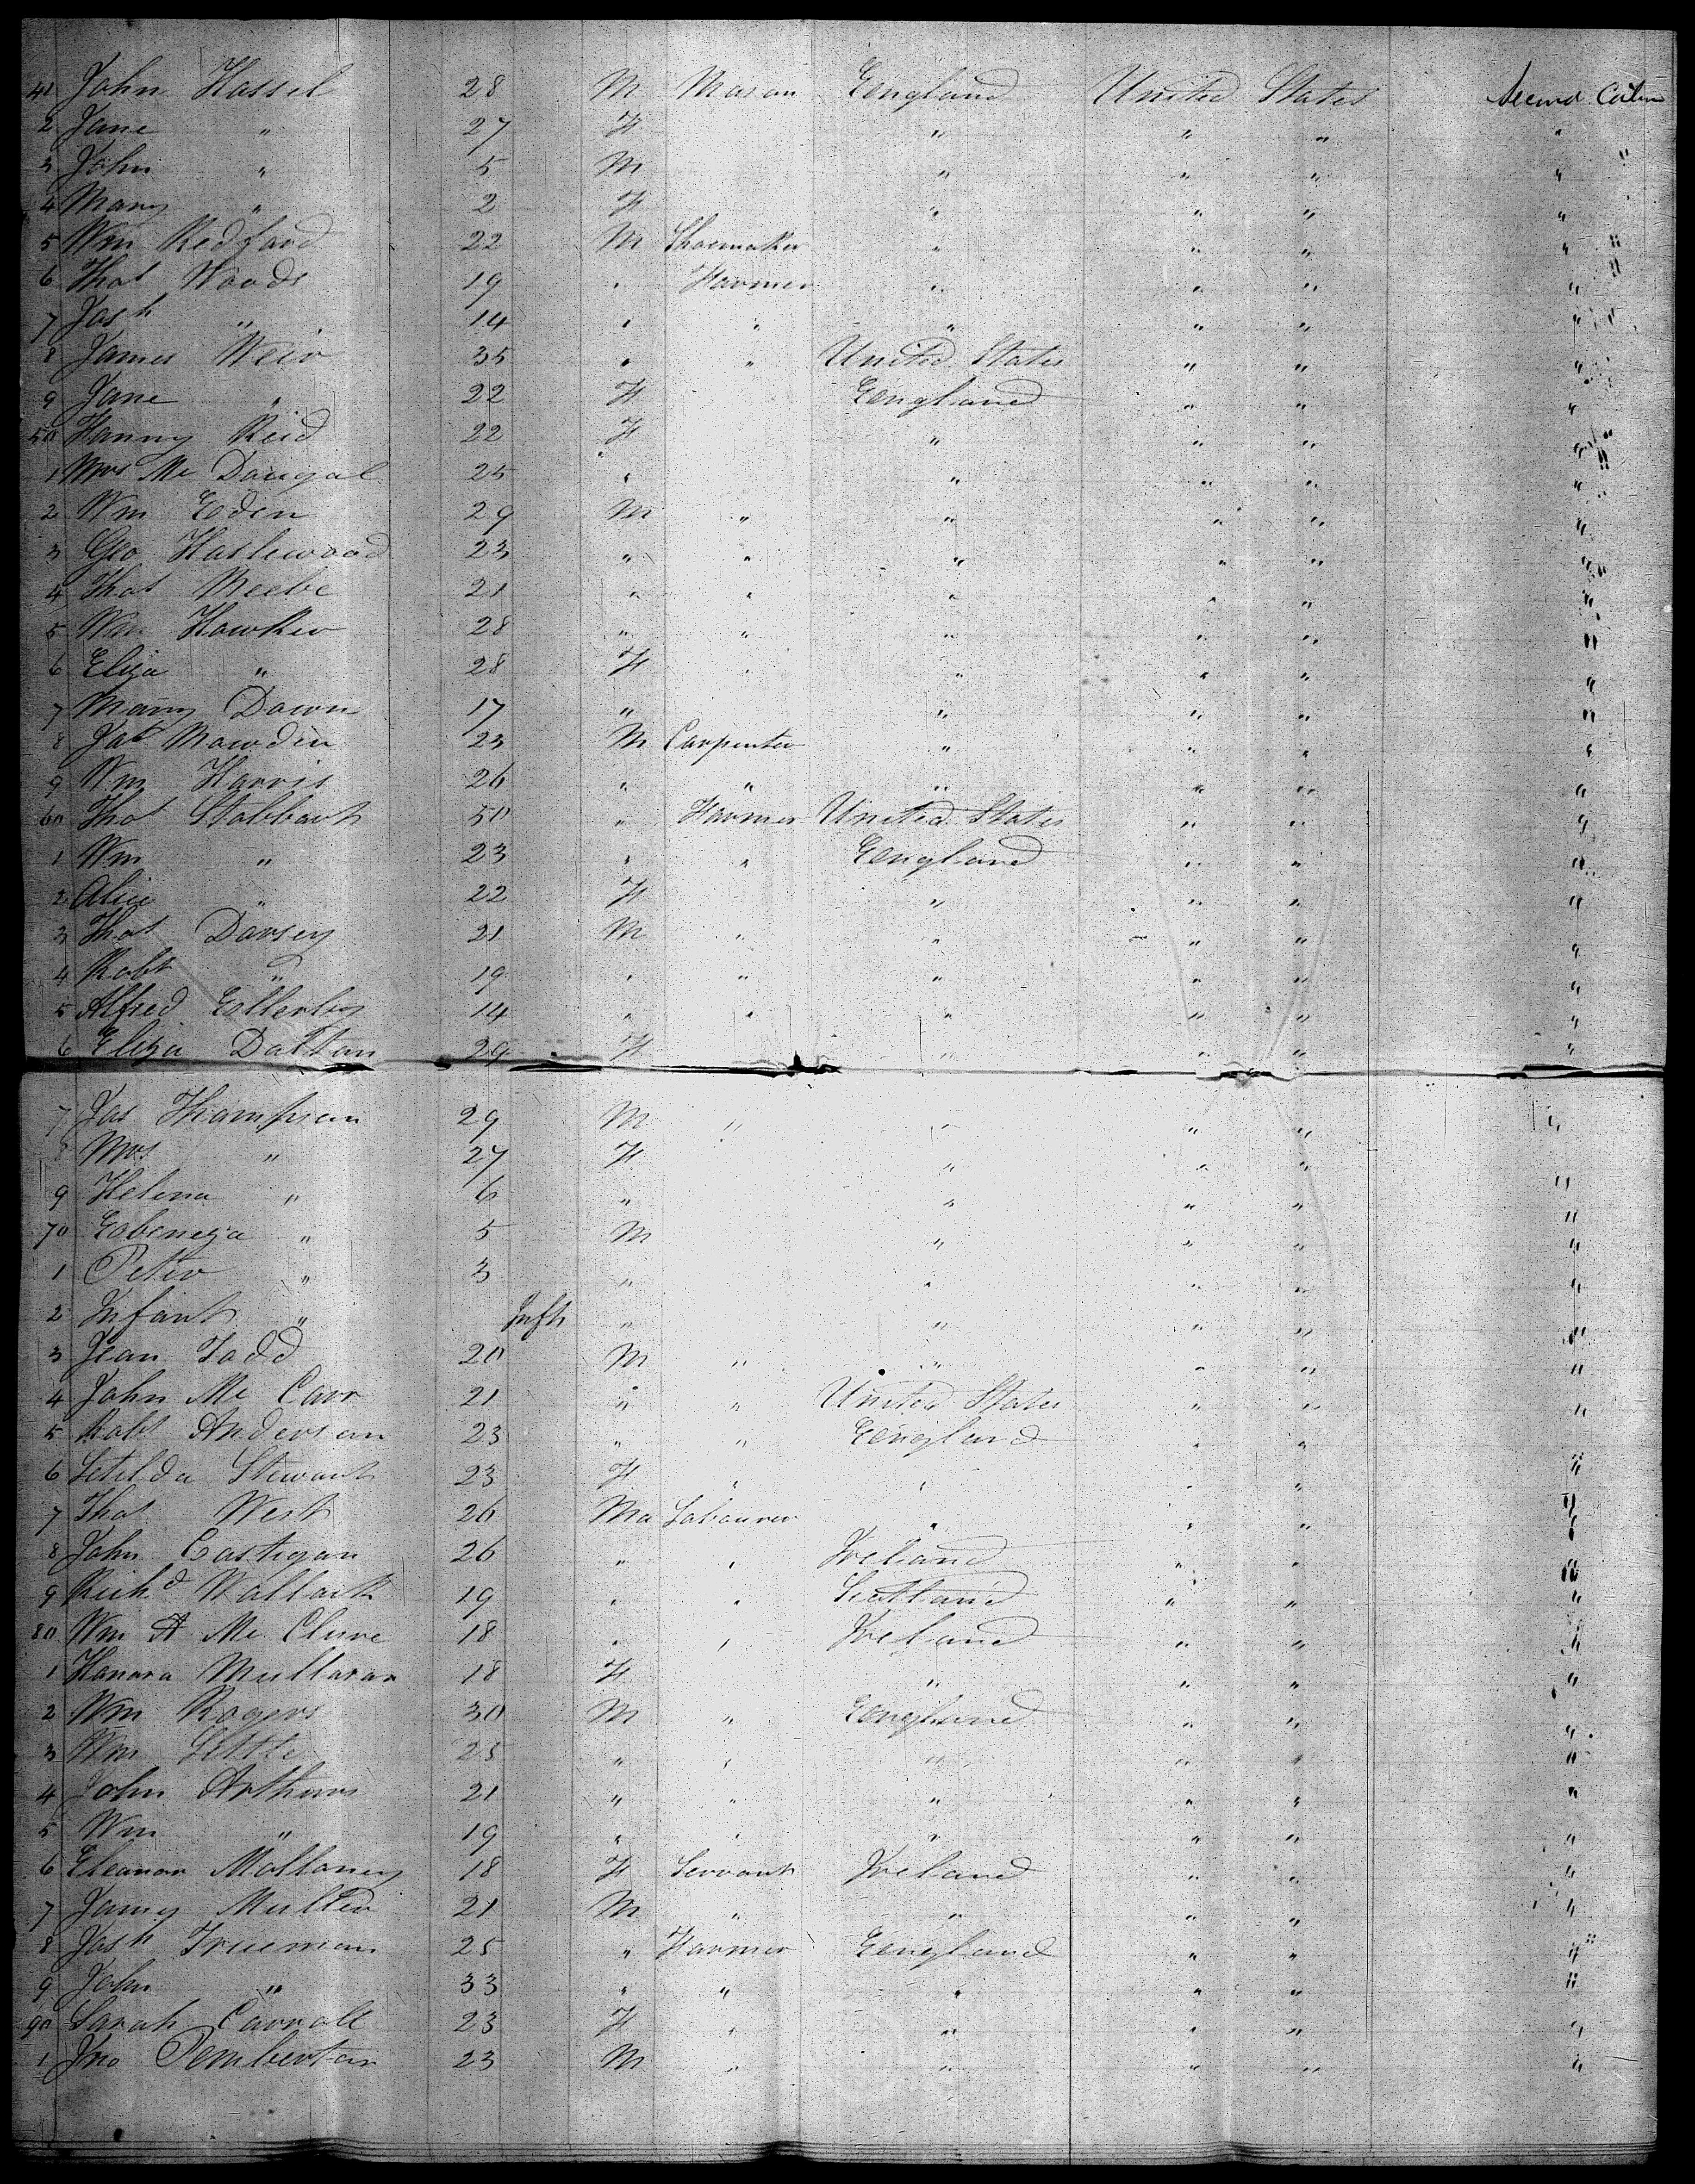 41 John Hassel 28 M Mason England United States Second Cabin
2 Jane " 27 F " " " "
3 John " 5 M " " " "
4 Mary " 2 F " " " "
5 Wm Redford 22 M Shoemaker " " " "
6 Thos Woods 19 " Farmer " " " "
7 Josh " 14 " " " " " "
8 James Weir 35 " " United States " " "
9 Jane " 22 F England " " "
50 Fanny Reid 22 F " " " "
1 Mrs Mc Dougal 25 " " " " "
2 Wm Eden 29 M " " " " "
3 Geo Haslewood 23 " " " " " "
4 Thos Beebe 21 " " " " " "
5 Wm Hawker 28 " " " " " "
6 Eliza " 28 F " " " " "
7 Mary Down 17 " " " " "
8 Jas Mowden 23 M Carpenter " " " "
9 Wm Harris 26 " " " " " "
60 Thos Stobbart 50 " Farmer United States " " "
1 Wm " 23 " " England " " "
2 Alice " 22 F " " " "
3 Thos Dorsey 21 M " " " " "
4 Robt " 19 " " " " " "
5 Alfred Ellerby 14 " " " " " "
6 Eliza Dalton 29 F " " " "
7 Jas Thompson 29 M " " " " "
8 Mrs " 27 F " " " "
9 Helena " 6 " " " " "
70 Ebeneza " 5 M " " " "
1 Peter " 3 " " " " "
2 Infant " Inft " " " " "
3 Jean Todd 20 M " " " " "
4 John Mc Carr 21 " " United States " " "
5 Robt Anderson 23 " " England " " "
6 Letilda Stewart 23 F " " " " "
7 Thos West 26 Ma Labourer " " " "
8 John Costigan 26 " " Ireland " " "
9 Richd Wallack 19 " " Scotland " " "
80 Wm A Mc Clure 18 " " Ireland " " "
1 Hanora Mullaran 18 F " " " "
2 Wm Rogers 30 M " England " " "
3 Wm Little 25 " " " " " "
4 John Arthurs 21 " " " " " "
5 Wm " 19 " " " " " "
6 Eleanor Mollaney 18 F Servant Ireland " " "
7 Jamy Muller 21 M " " " " "
8 Josh Trueman 25 " Farmer England " " "
9 John " 33 " " " " " "
90 Sarah Carroll 23 F " " " " "
1 Jno Pemberton 23 M " " " " "